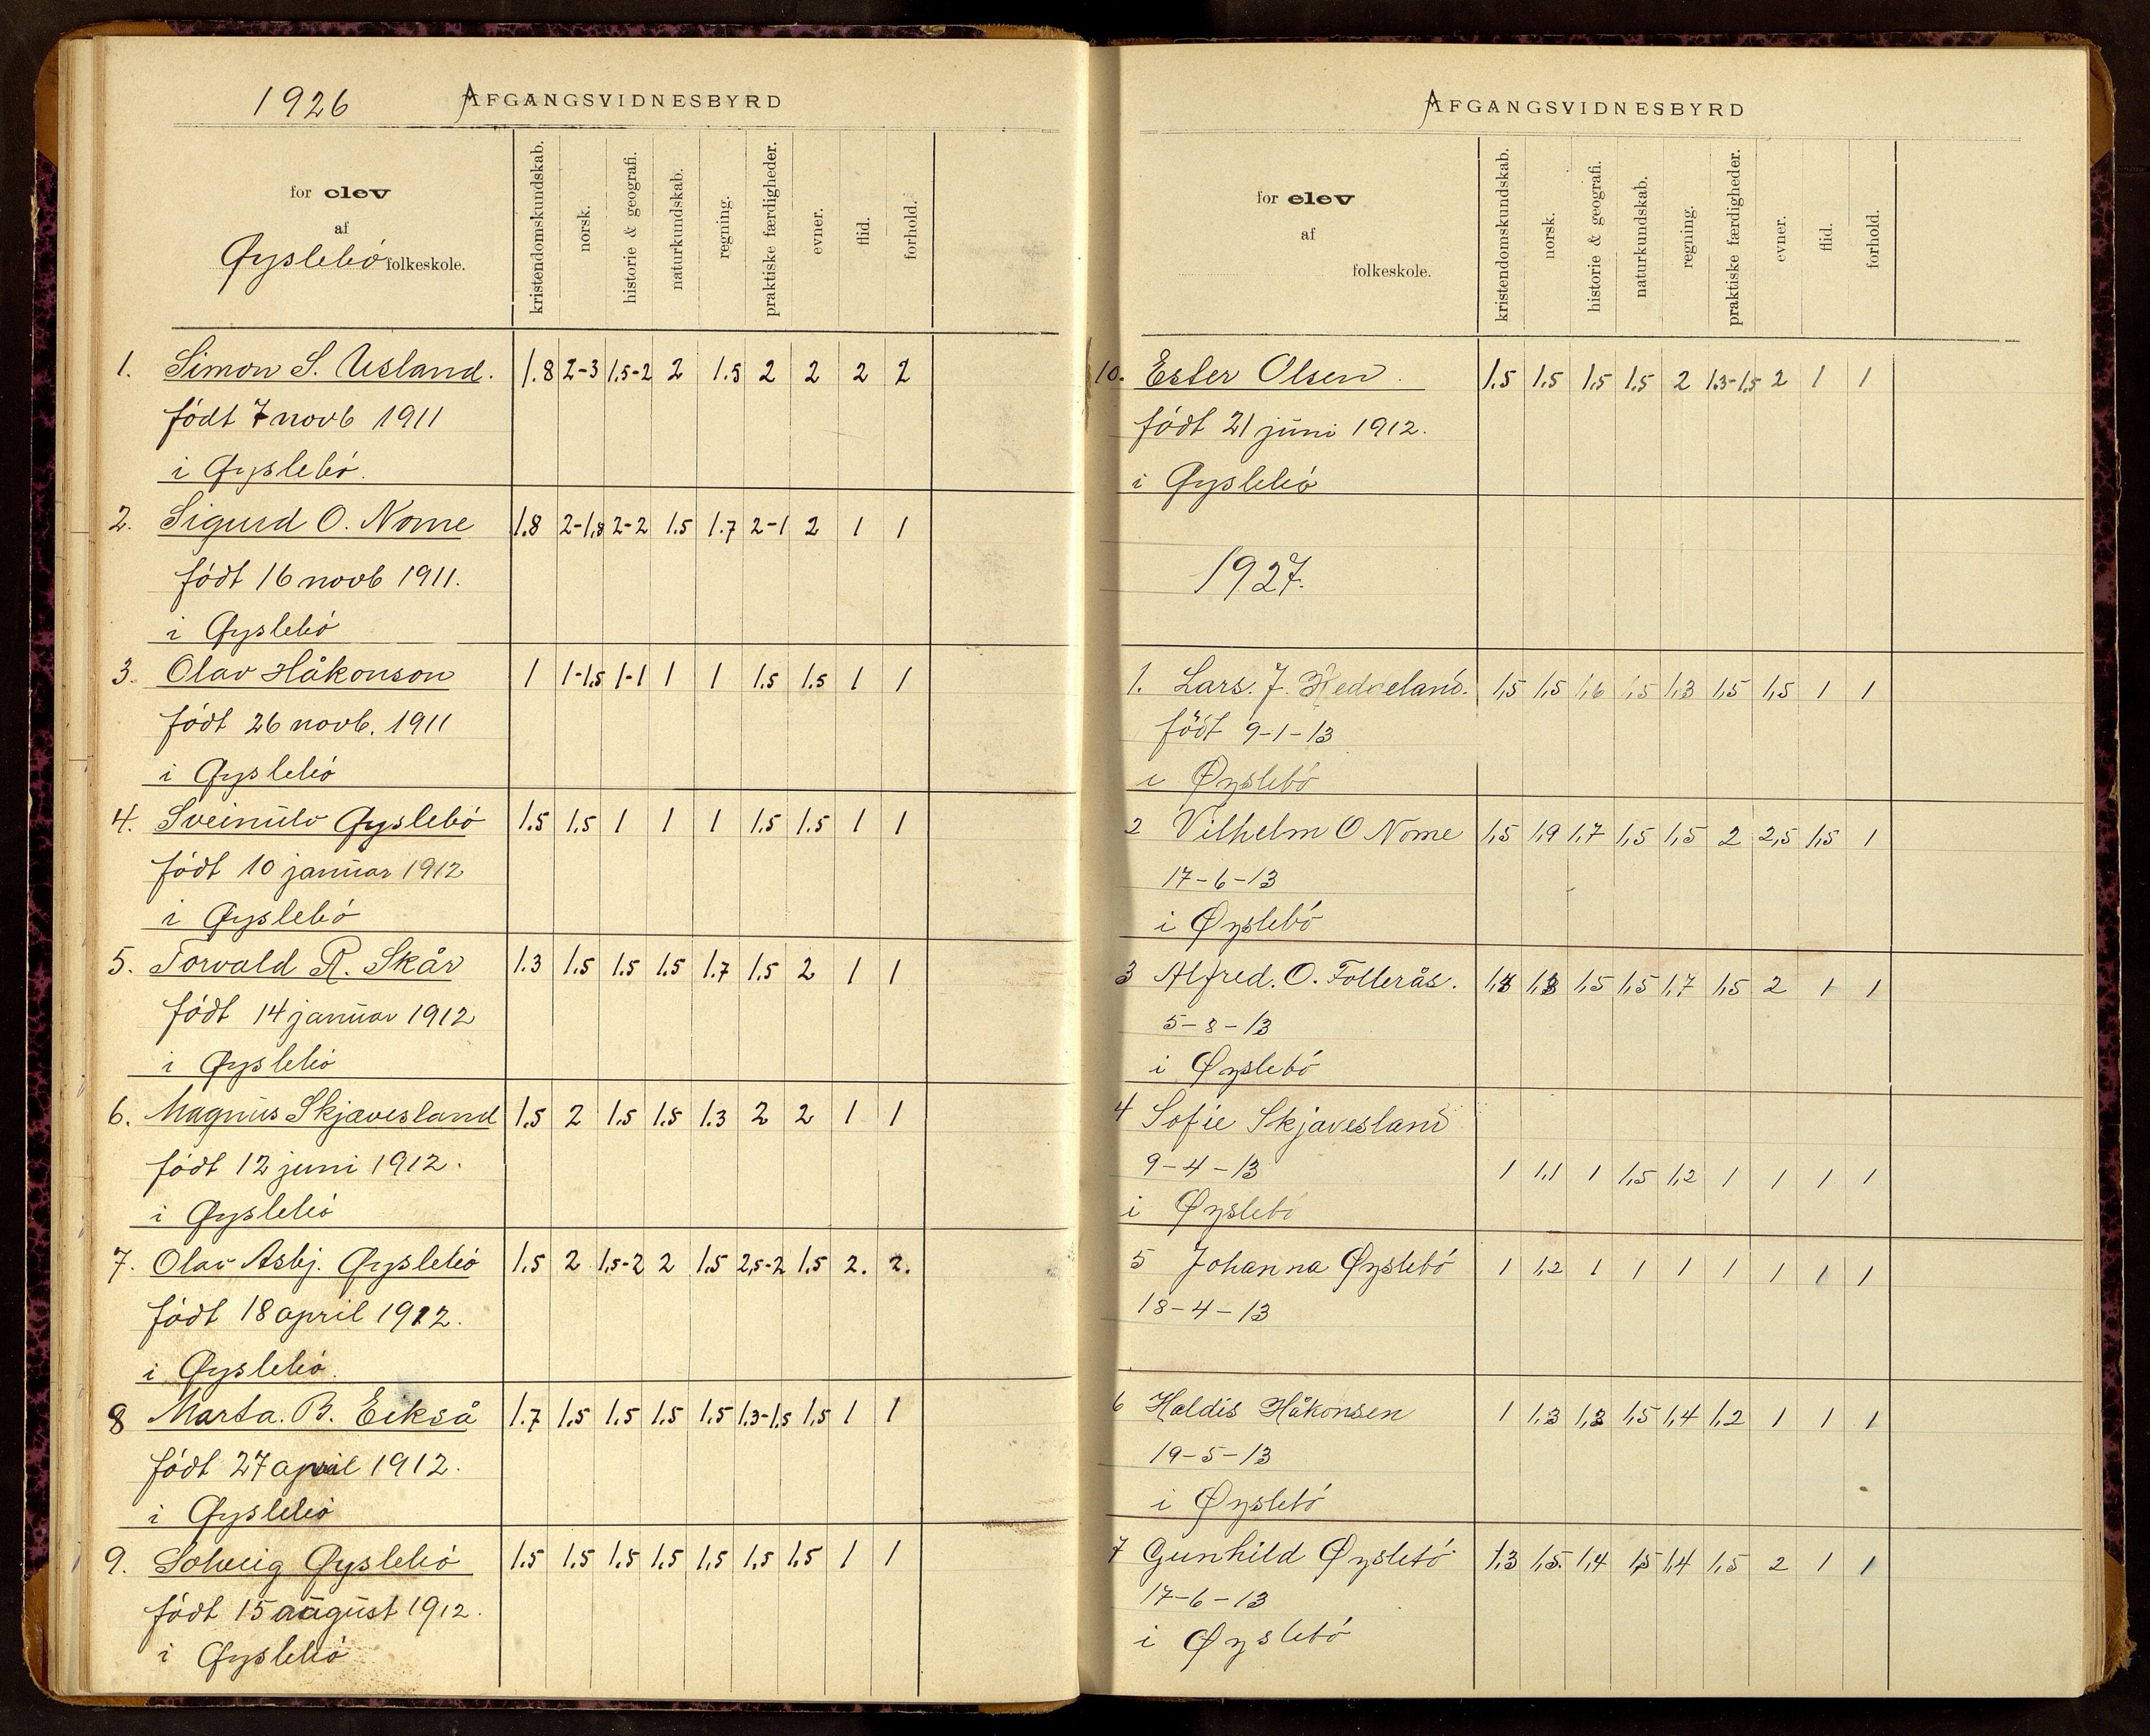 1926 AFGANGSVIDNESBYRD
for elev
af
Øyslebö folkeskole.
kristendomskundskab. norsk. historie & geografi. naturkundskab. regning. praktiske færdigheder. evner. flid. forhold.
1. Simon S. Usland. 1.8 2-3 1,5-2 2 1.5 2 2 2 2
födt 7 novb 1911
i Øyslebö.
2. Sigurd O. Nome 1.8 2-1,8 2-2 1.5 1.7 2-1 2 1 1
födt 16 novb 1911.
i Øyslebö
3. Olav Håkonson 1 1-1.5 1-1 1 1 1.5 1.5 1 1
födt 26 novb. 1911
i Øyslebö
4. Sveinulv Øyslebö 1.5 1.5 1 1 1 1.5 1.5 1 1
födt 10 januar 1912
i Øyslebö
5. Torvald R. Skår 1.3 1.5 1.5 1.5 1.7 1.5 2 1 1
födt 14 januar 1912
i Øyslebö
6. Magnus Skjævesland 1.5 2 1.5 1.5 1.3 2 2 1 1
födt 12 juni 1912.
i Øyslebö
7. Olav Asbj. Øyslebö 1.5 2 1,5-2 2 1.5 2,5-2 1.5 2. 2.
födt 18 april 1912.
i Øyslebö.
8 Marta. B. Eikså 1.7 1,5 1.5 1.5 1.5 1.3-1,5 1,5 1 1
födt 27 april 1912.
i Øyslebö
9. Solveig Øyslebö 1.5 1.5 1.5 1.5 1,5 1,5 1,5 1 1
födt 15 august 1912.
i Øyslebö
AFGANGSVIDNESBYRD
for elev
af
folkeskole.
kristendomskundskab. norsk. historie & geografi. naturkundskab. regning. praktiske færdigheder. evner. flid. forhold.
10. Ester Olsen. 1.5 1.5 1,5 1.5 2 1.3-1,5 2 1 1
födt 21 juni 1912.
i Øyslebö
1927.
1. Lars. J. Heddeland. 1,5 1,5 1,6 1,5 1,3 1,5 1,5 1 1
födt 9-1-13
i Øyslebö
2 Vilhelm O Nome 1,5 1,9 1,7 1,5 1,5 2 2,5 1,5 1
17-6-13
i Øyslebö
3 Alfred. O. Follerås. 1,3 1,5 1,5 1,7 1,5 2 1 1
5-8-13
i Øyslebö
4 Sofie Skjævesland
9-4-13 1 1,1 1 1,5 1,2 1 1 1 1
i Øyslebö
5 Johanna Øyslebö 1 1,2 1 1 1 1 1 1 1
18-4-13
6 Haldis Håkonsen 1 1,3 1,3 1,5 1,4 1,2 1 1 1
19-5-13
i Øyslebö
7 Gunhild Øyslebö 1,3 1,5. 1,4 1,5 1,4 1,5 2 1 1
17-6-13
i Øyslebö